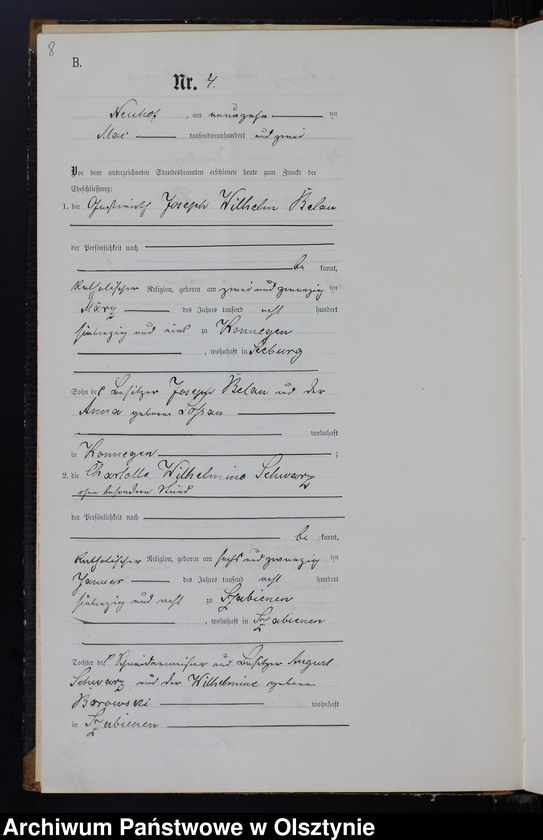 8
B.
Nr. 4.
Neuhof, am neunzehn ten
Mai tausendneunhundert und zwei
Vor dem unterzeichneten Standesbeamten erschienen heute zum Zwecke der
Eheschließung:
1. der Gastwirth Joseph Wilhelm Belau
der Persönlichkeit nach
be kannt,
katholischer Religion, geboren am zwei und zwanzig ten
März des Jahres tausend acht hundert
siebenzig und eins zu Konnegen
, wohnhaft in Seeburg
Sohn des Besitzer Joseph Belau und der
Anna geborene Lossau
wohnhaft
in Konnegen ;
2. die Charlotte, Wilhelmine Schwarz
ohne besonderen Stand
der Persönlichkeit nach
be kannt,
katholischer Religion, geboren am sechs und zwanzig ten
Januar des Jahres tausend acht hundert
siebenzig und acht zu Szabienen
, wohnhaft in Szabienen
Tochter des Schneidermeister und Besitzer August
Schwarz und der Wilhelmine geborene
Borowski wohnhaft
in Szabienen
Archiwum Państwowe w Olsztynie